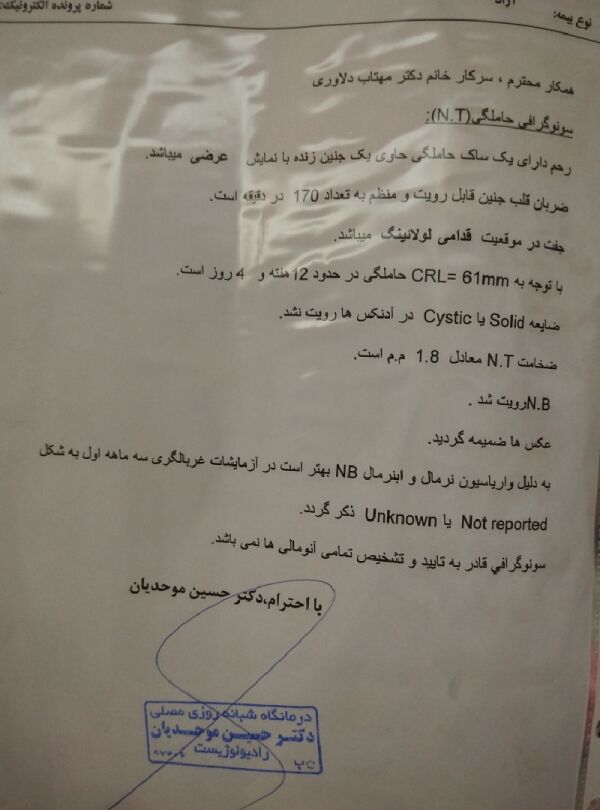 شماره پرونده الکترونیک:
نوع بیمه: آزاد
همکار محترم ، سرکار خانم دکتر مهتاب دلاوری
سونوگرافی حاملگی(N.T):
رحم دارای یک ساک حاملگی حاوی یک جنین زنده با نمایش عرضی میباشد.
ضربان قلب جنین قابل رویت و منظم به تعداد 170 در دقیقه است.
جفت در موقعیت قدامی لولاینیگ میباشد.
با توجه به CRL= 61mm حاملگی در حدود 12هفته و 4 روز است.
ضایعه Solid یا Cystic در آدنکس ها رویت نشد.
ضخامت N.T معادل 1.8 م.م است.
N.Bرویت شد .
عکس ها ضمیمه گردید.
به دلیل واریاسیون نرمال و ابنرمال NB بهتر است در آزمایشات غربالگری سه ماهه اول به شکل
Not reported یا Unknown ذکر گردد.
سونوگرافي قادر به تایید و تشخیص تمامی آنومالی ها نمی باشد.
با احترام،دکتر حسین موحدیان
درمانگاه شبانه روزی مصلی
دکتر حسین موحدیان
رادیولوژیست
ن پ